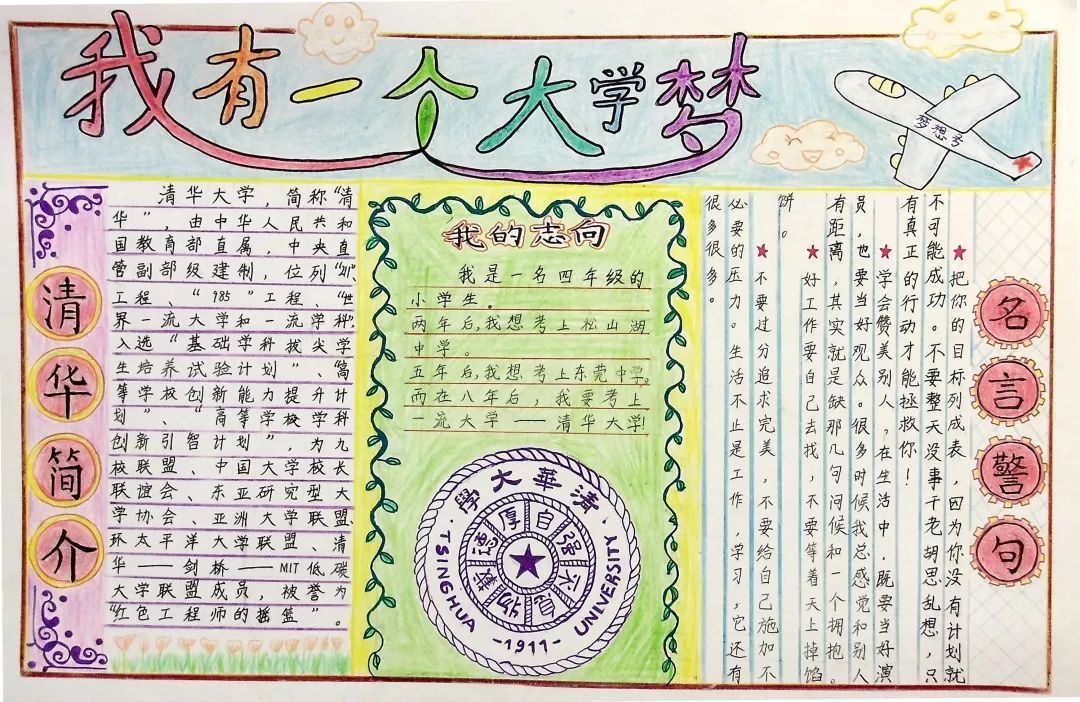 我有一个大学梦
梦想号
清华简介
清华大学，简称“清
华”，由中华人民共和
国教育部直属，中央直
管副部级建制，位列“211”、
工程、“985”工程、“世
界一流大学和一流学科”，
入选“基础学科拔尖学
生培养试验计划”、“高
等学校创新能力提升计
划”、“高等学校学科
创新引智计划”，为九
校联盟、中国大学校长
联谊会、东亚研究型大
学协会、亚洲大学联盟、
环太平洋大学联盟、清
华——剑桥——MIT低碳
大学联盟成员，被誉为
“红色工程师的摇篮”。
我的志向
我是一名四年级的
小学生。
两年后，我想考上松山湖
中学。
五年后，我想考上东莞中学。
而在八年后，我要考上
一流大学——清华大学！
清華大學
自强不息
厚德載物
TSINGHUA UNIVERSITY
-1911-
名言警句
★把你的目标列成表，因为你没有计划就
不可能成功。不要整天没事干老胡思乱想，只
有真正的行动才能拯救你！
★学会赞美别人，在生活中，既要当好演
员，也要当好观众。很多时候我总感觉和别人
有距离，其实就是缺那几句问候和一个拥抱。
★好工作要自己去找，不要等着天上掉馅
饼。
★不要过分追求完美，不要给自己施加不
必要的压力。生活不止是工作，学习，它还有
很多很多。